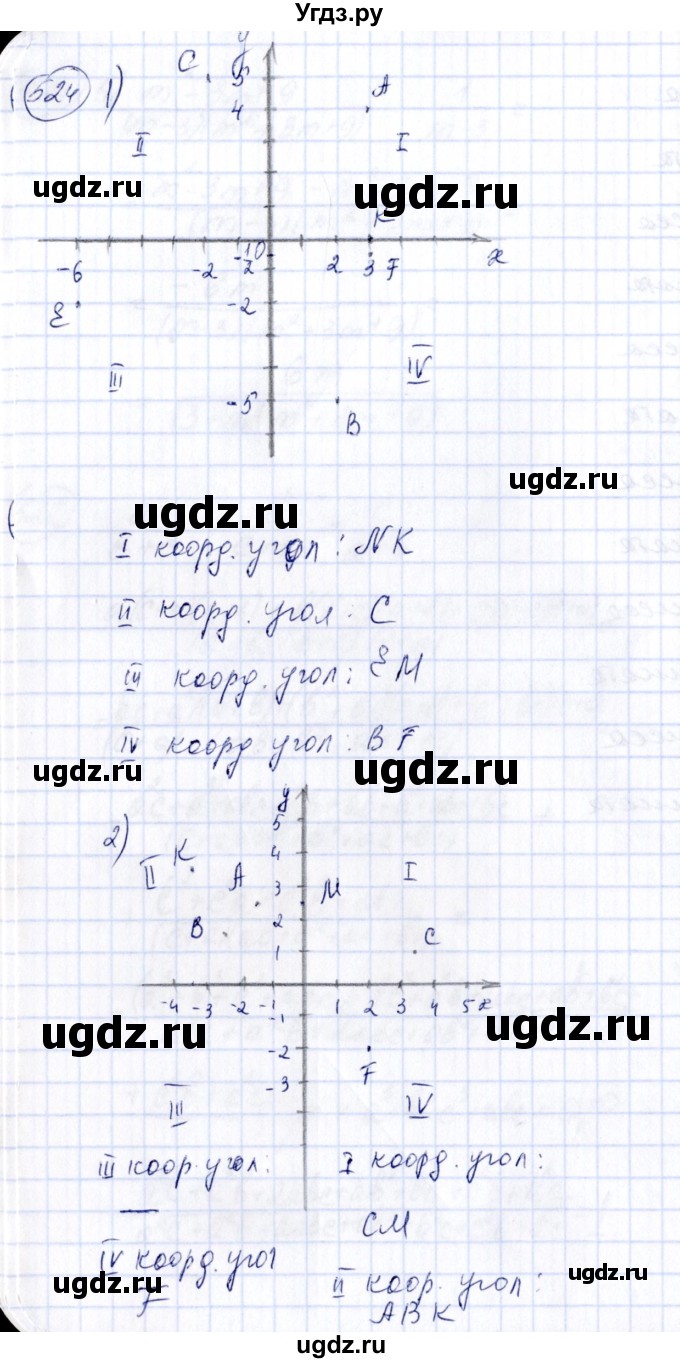 Угдз.ру
524 1)
C y
5
A
4
II I
ugdz.ru ugdz.ru
K
-6 -2 -1 0 2 3 F x
E -2
III IV
-5
B
ugdz.ru
ugdz.ru
I коорд. угол: NK
II коорд. угол: C
III коорд. угол: EM
IV коорд угол: BF
ugdz.ru ugdz.ru
2)
y
5
K 4
II A 3 M I
B 2 C
1
-4 -3 -2 -1 1 2 3 4 5 x
-1
ugdz.ru ugdz.ru
-2
F
-3
III IV
III коор. угол: I коорд. угол:
— CM
IV коорд. угол
II коор. угол:
F
ABK
ugdz.ru ugdz.ru
ugdz.ru